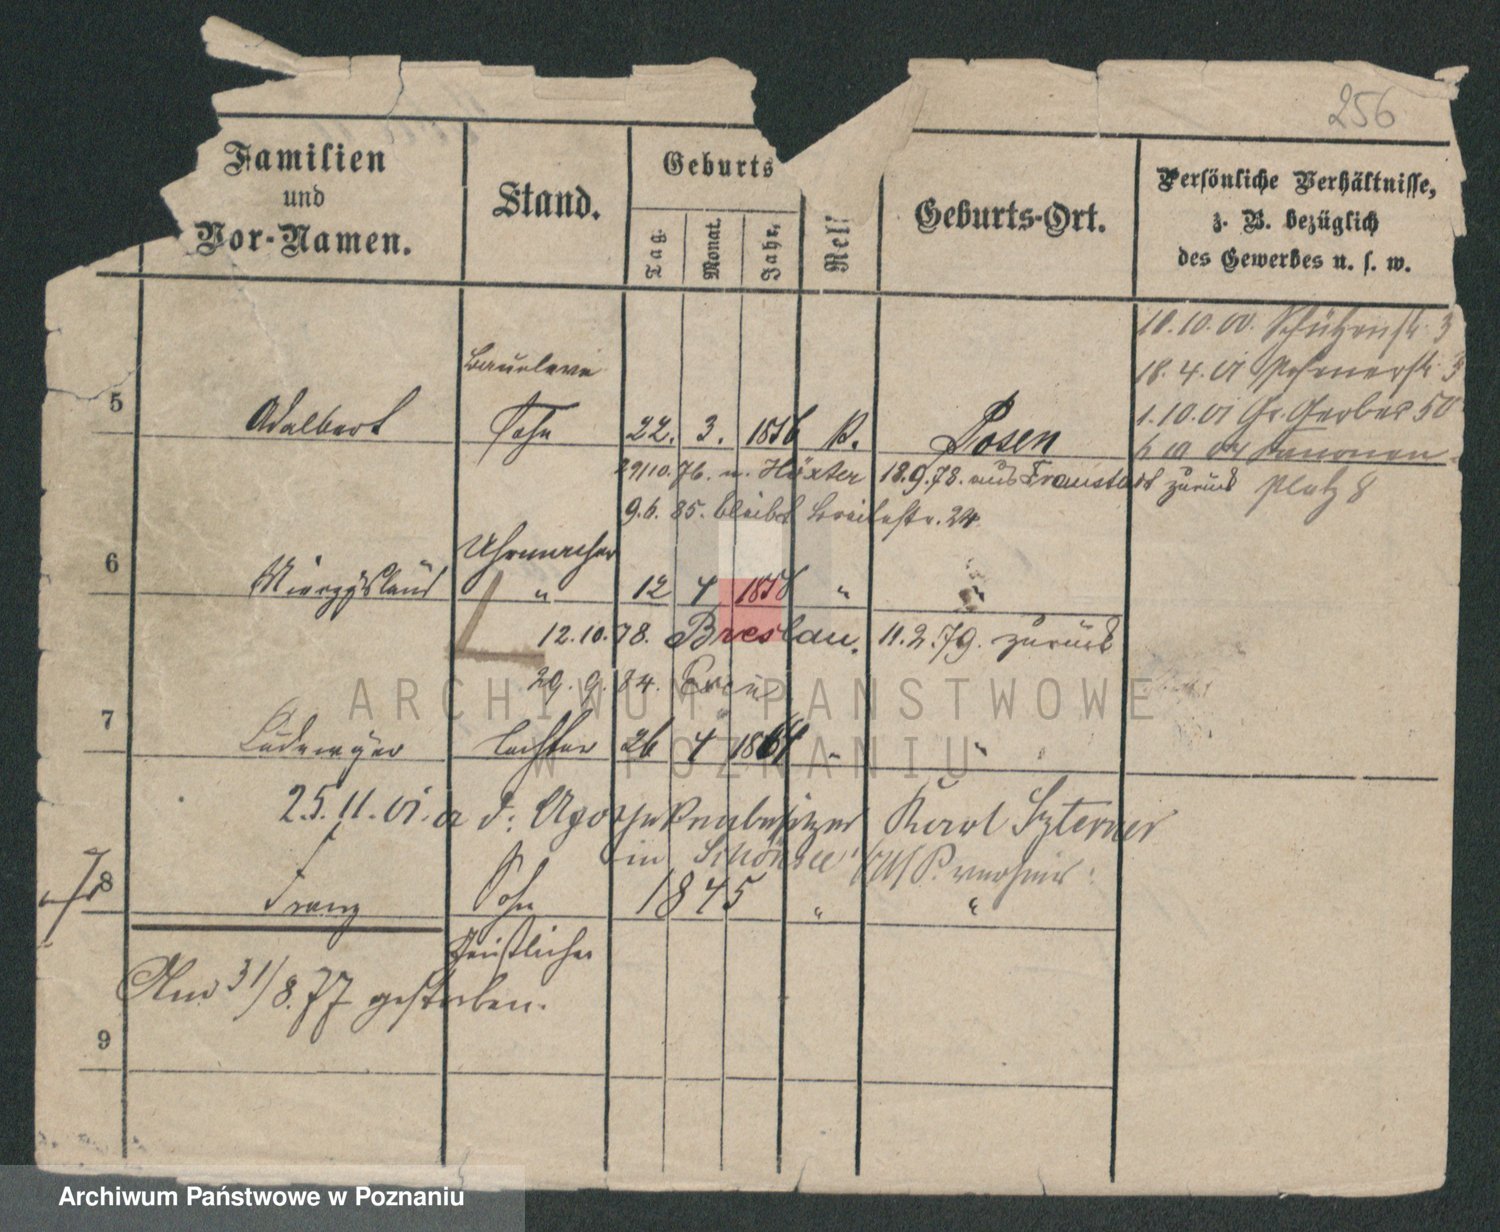 256
Familien
und
Vor-Namen.
Stand.
Geburts
Tag.
Monat.
Jahr.
Reli
Geburts-Ort.
Persönliche Verhältnisse,
z. B. bezüglich
des Gewerbes u. s. w.
10.10.00. Schützenstr. 3
18.4.01
1.10.01 Gr. Gerber 50
Kanonen
platz 8
5
Adalbert
Sohn
22. 3. 1856 k. Posen
29/10.76. n. Höxter 18.9.78. aus Fraustadt zurück
9.6.85. bleibt Breitestr. 24
6
Uhrmacher
" 12 4 1858 " "
12.10.78. Breslau. 11.2.79. zurück
29.9.84.
7
Tochter 26 4 1864 " "
25.11.01. a d. Apothekenbesitzer Karol Szterner
in Schönsee W/Pr. verh.
8
Franz
Sohn 1845 " "
Geistlicher
Am 31/8.77 gestorben.
9
ARCHIWUM PAŃSTWOWE
W POZNANIU
Archiwum Państwowe w Poznaniu